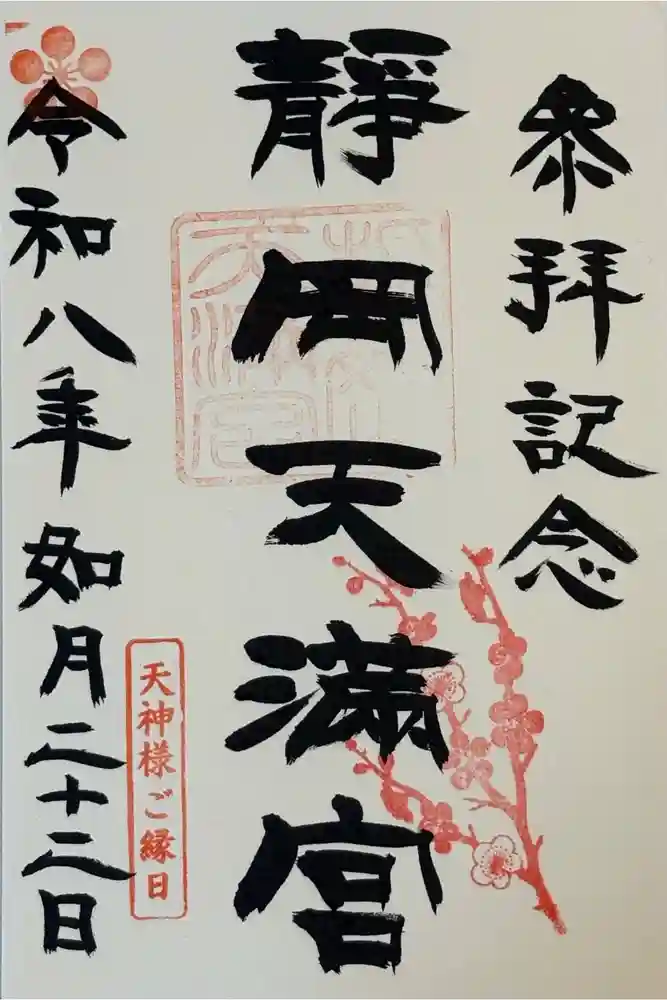 參拝記念
靜岡天満宮
天神様ご縁日
令和八年如月二十二日